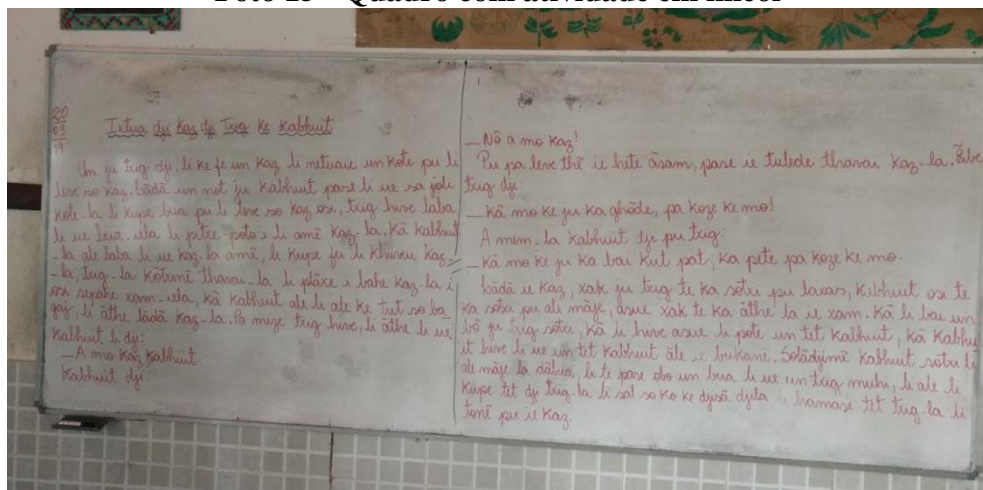 Foto 15 – Quadro com atividade em lincol
20
03
19
Ixtua dji Kaz dji Txig Ke Kabhuit
Un ju txig dji, li ke fe un Kaz li netuaie un kote pu li
leve so kaz. bãdã un not ju Kabhuit pase li ue sa joli
kote-la li kupe bua pu li leve so kaz osi, txig hive laba
li ue bua-iela li pitxe poto i li amë kaz-la. Kã kabhuit
-la ale laba li ue kaz-la amë, li kupe fei li khuvui kaz
-la, txig-la kõtinë thavai-la li plãxe i bahe kaz-la i
osi sepahe xam-iela, kã kabhuit ale li ale ke tut so ba
gaj, li ãthe lãdã kaz-la. Pa muze txig hive, li ãthe li ue
Kabhuit li dji:
—A mo kaz kabhuit
Kabhuit dji:
—Nõ a mo kaz!
Pu pa leve thë ie hete ãsam, pase ie tulede thavai kaz-la.
txig dji:
—Kã mo ke ju ka ghõde, pa koze ke mo!
A mem-la kabhuit dji pu txig:
—Kã mo ke ju ka bai kut pat, ka pete pa koze ke mo.
bãdã ie kaz, xak ju txig te ka sotxi pu laxas, kabhuit osi te
ka sotxi pu ale mãje, asue xak te ka ãthe la ie xam. Kã li bai un
bõ ju txig sotxi, kã li hive asue li pote un tet kabhuit, kã kabhu
it hive li ue un tet kabhuit ãle ie bukanë. Solãdjimë kabhuit sotxi li
ale mãje la dãbua, li te pase obo un bua li ue un txig muhi, li ale li
kupe tet dji txig-la li sal so ko ke djisã djila li hamase tet txig-la li
tonë pu ie kaz.